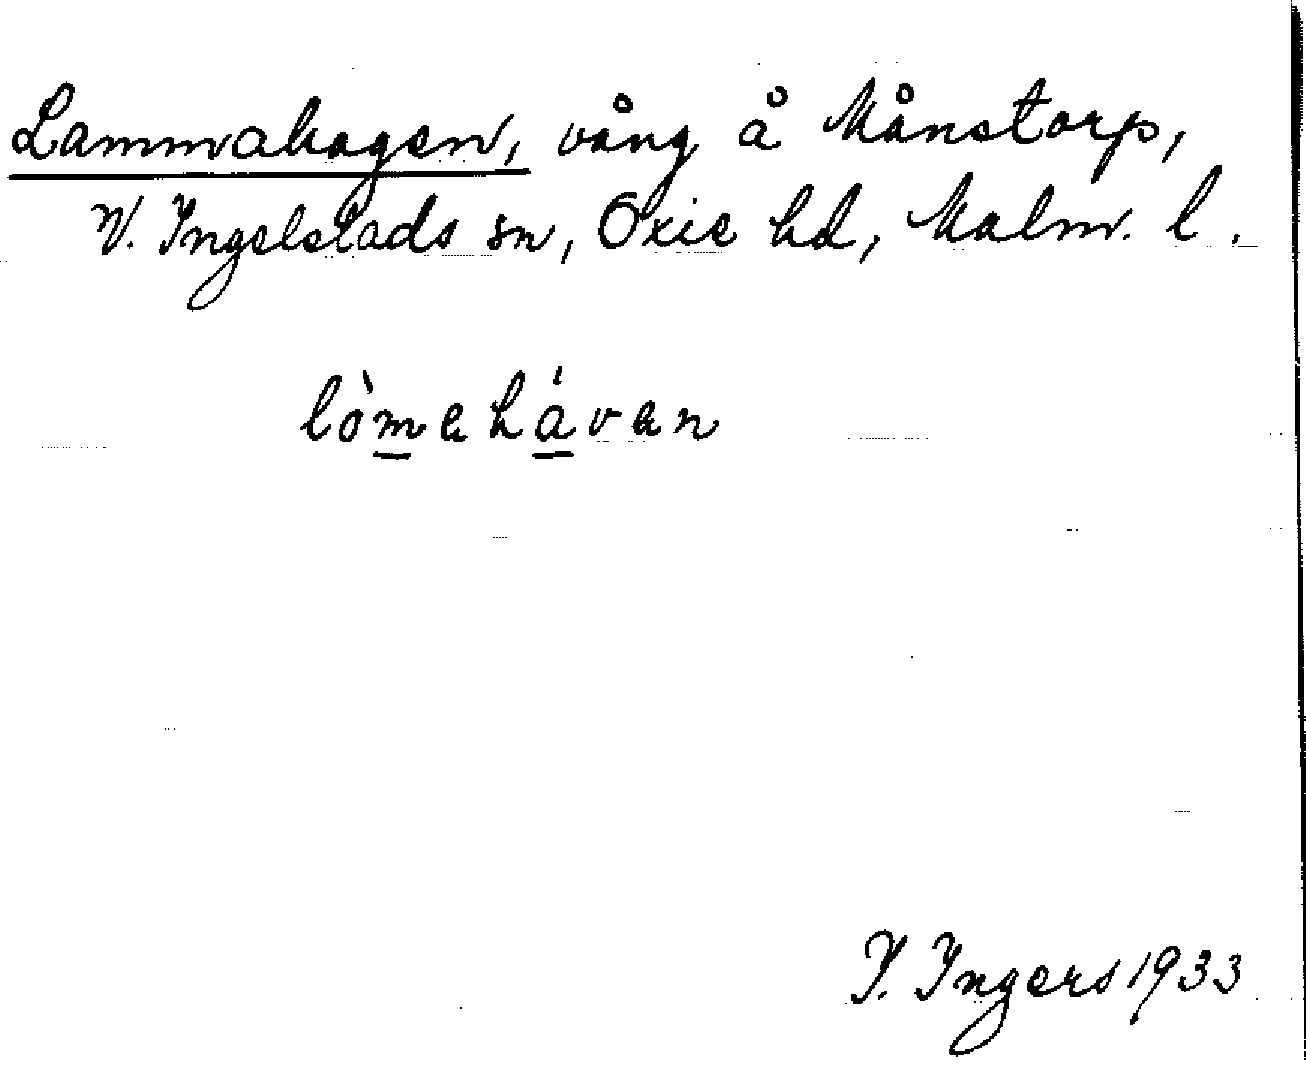 Lammahagen, vång å Månstorp,
V. Ingelstads sn, Oxie hd, Malm. l.
lòmahávan
I. Ingers 1933